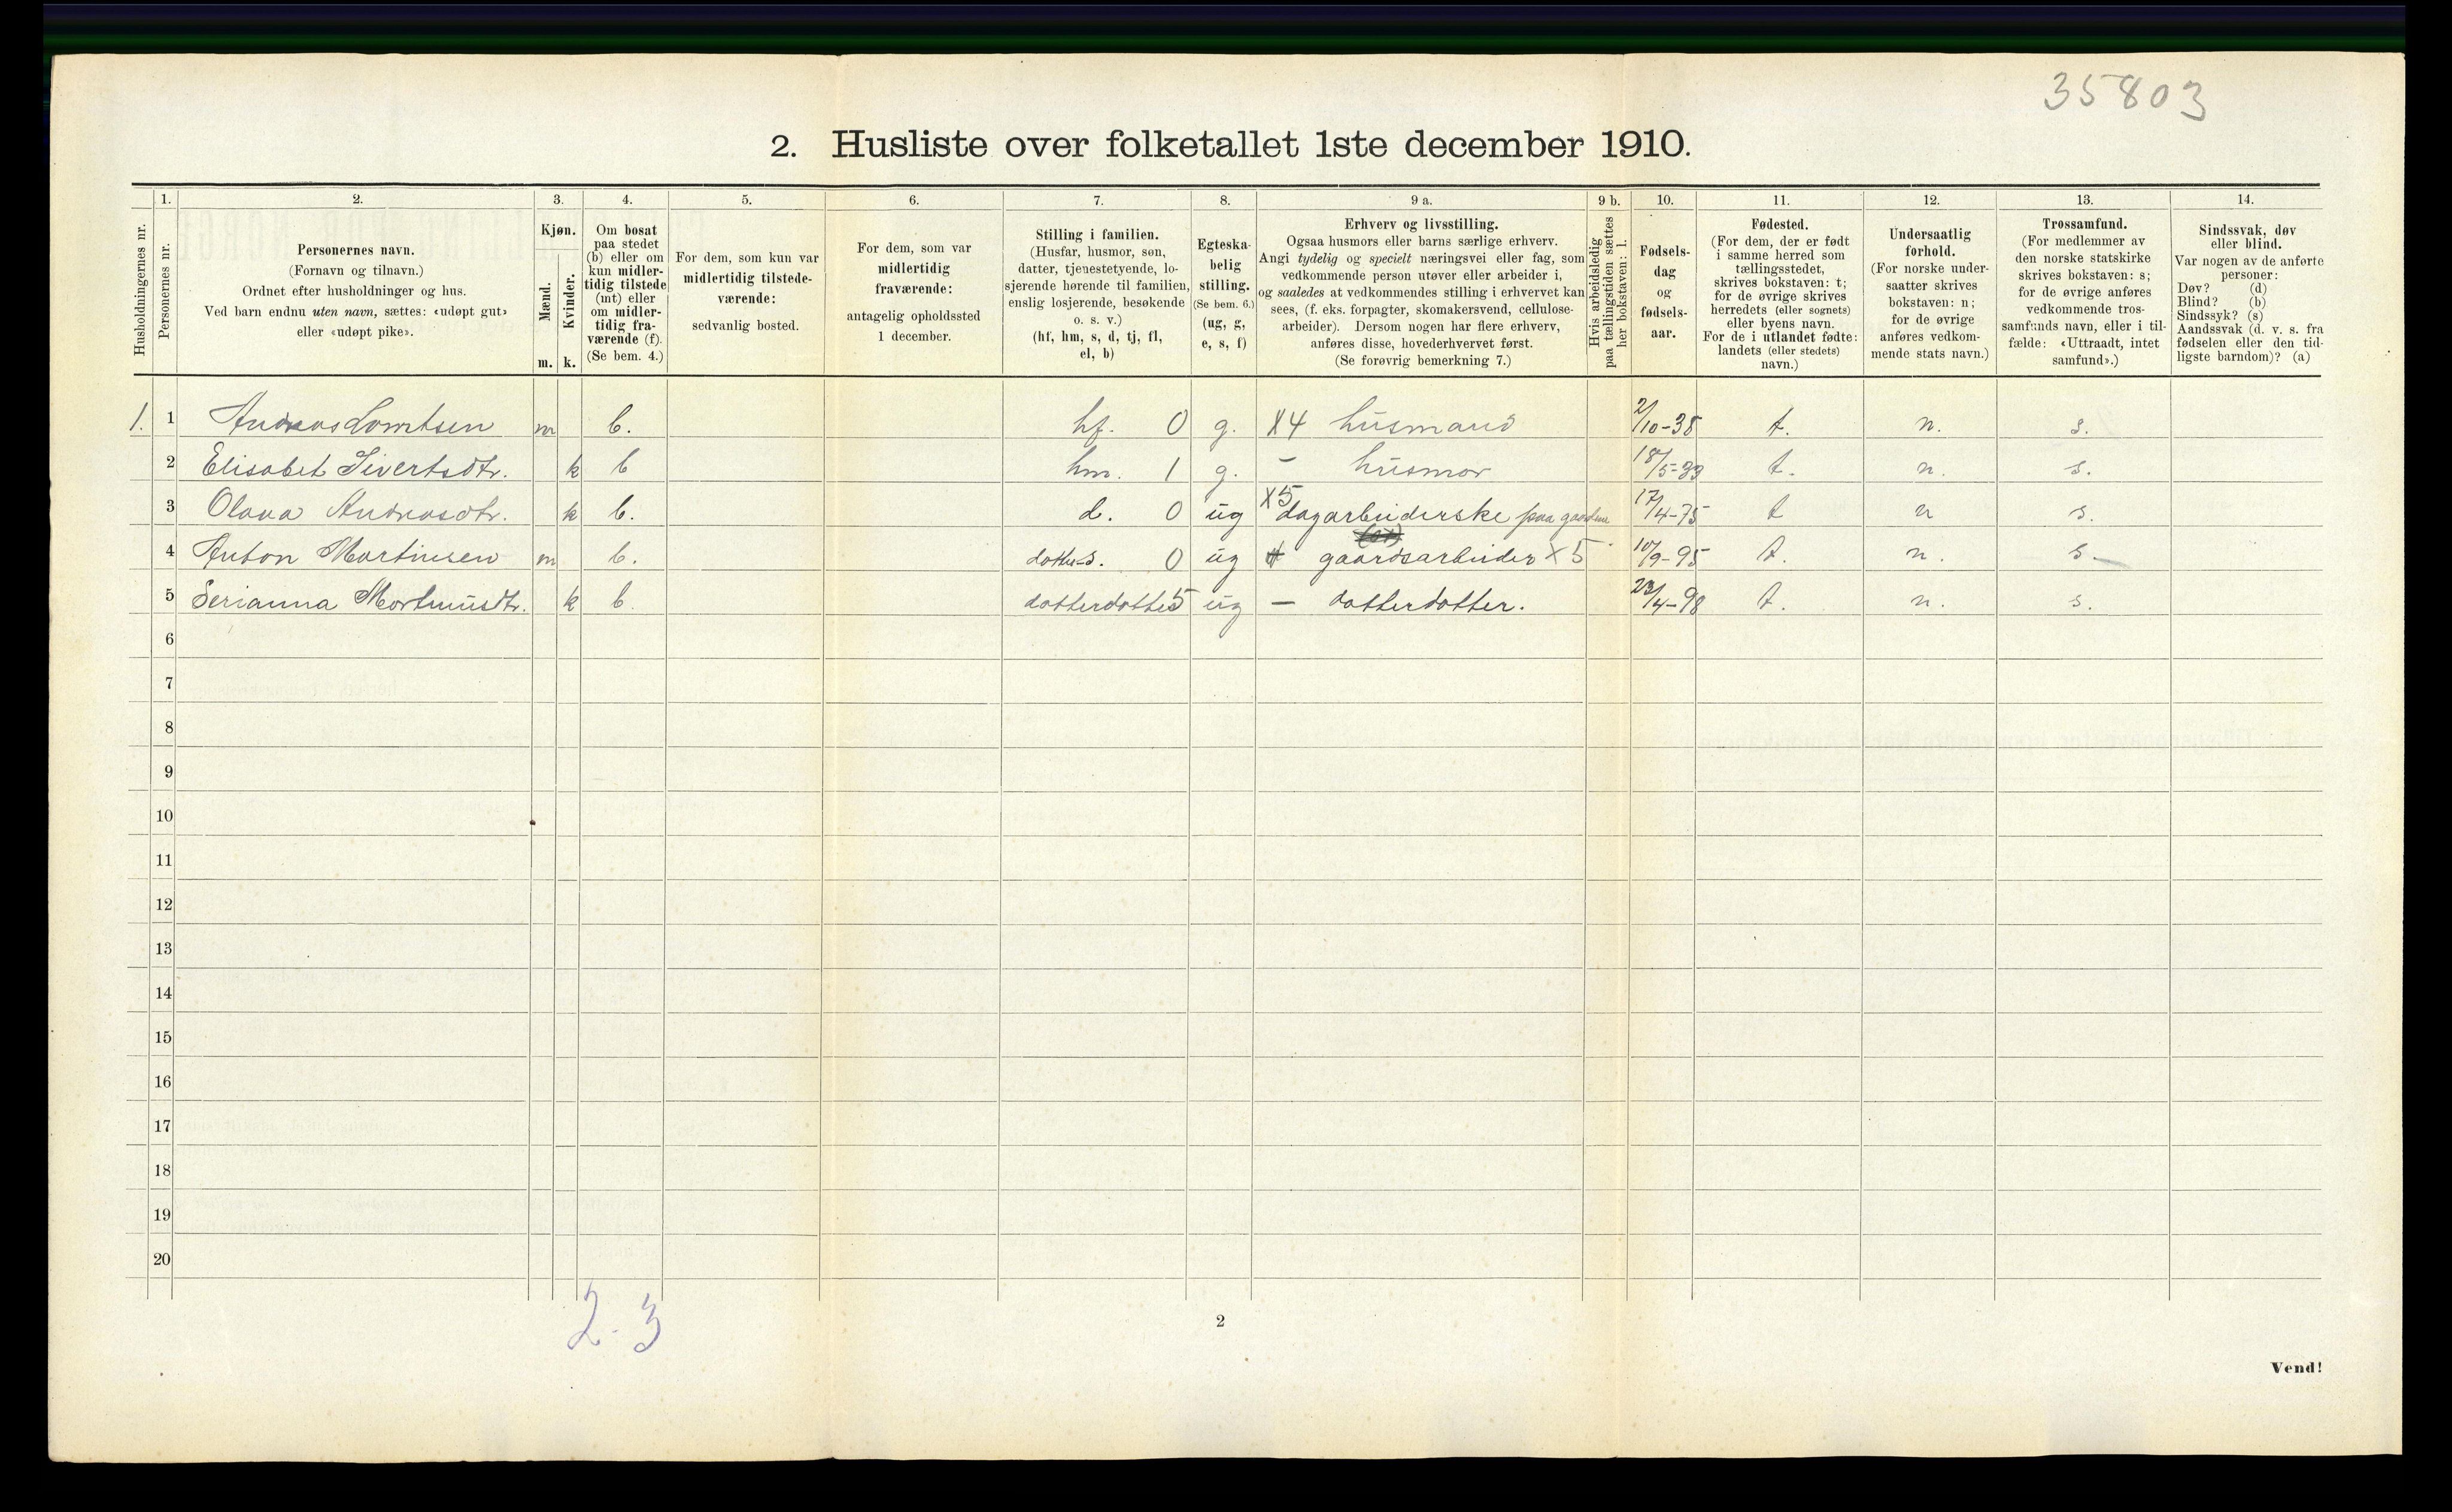 35803
2. Husliste over folketallet 1ste december 1910.
Husholdningernes nr.
1.
Personernes nr.
2.
Personernes navn.
(Fornavn og tilnavn.)
Ordnet efter husholdninger og hus.
Ved barn endnu uten navn, sættes: «udøpt gut»
eller «udøpt pike».
3.
Kjøn.
Mænd.
m.
Kvinder.
k.
4.
Om bosat
paa stedet
(b) eller om
kun midler-
tidig tilstede
(mt) eller
om midler-
tidig fra-
værende (f).
(Se bem. 4.)
5.
For dem, som kun var
midlertidig tilstede-
værende:
sedvanlig bosted.
6.
For dem, som var
midlertidig
fraværende:
antagelig opholdssted
1 december.
7.
Stilling i familien.
(Husfar, husmor, søn,
datter, tjenestetyende, lo-
sjerende hørende til familien,
enslig losjerende, besøkende
o. s. v.)
(hf, hm, s, d, tj, fl,
el, b)
8.
Egteska-
belig
stilling.
(Se bem. 6.)
(ug, g,
e, s, f)
9 a.
Erhverv og livsstilling.
Ogsaa husmors eller barns særlige erhverv.
Angi tydelig og specielt næringsvei eller fag, som
vedkommende person utøver eller arbeider i,
og saaledes at vedkommendes stilling i erhvervet kan
sees, (f. eks. forpagter, skomakersvend, cellulose-
arbeider). Dersom nogen har flere erhverv,
anføres disse, hovederhvervet først.
(Se forøvrig bemerkning 7.)
9 b.
Hvis arbeidsledig
paa tællingstiden sættes
her bokstaven: l.
10.
Fødsels-
dag
og
fødsels-
aar.
11.
Fødested.
(For dem, der er født
i samme herred som
tællingsstedet,
skrives bokstaven: t;
for de øvrige skrives
herredets (eller sognets)
eller byens navn.
For de i utlandet fødte:
landets (eller stedets)
navn.)
12.
Undersaatlig
forhold.
(For norske under-
saatter skrives
bokstaven: n;
for de øvrige
anføres vedkom-
mende stats navn.)
13.
Trossamfund.
(For medlemmer av
den norske statskirke
skrives bokstaven: s;
for de øvrige anføres
vedkommende tros-
samfunds navn, eller i til-
fælde: «Uttraadt, intet
samfund».)
14.
Sindssvak, døv
eller blind.
Var nogen av de anførte
personer:
Døv? (d)
Blind? (b)
Sindssyk? (s)
Aandssvak (d. v. s. fra
fødselen eller den tid-
ligste barndom)? (a)
1. 1 m b. hf. 0 g. X4 husmand 2/10-38 t. n. s.
2 Elisabet Sivertsdtr. k b hm. 1 g. - husmor 18/5-33 t. n. s.
3 Olava Andreasdtr. k b. d. 0 ug X5 dagarbeiderske paa gaardene 17/4-75 t n s.
4 Anton Martinsen m b. datter-s. 0 ug gaardsarbeider X5 10/9-95 t. n. s.
5 Serianna Martinusdtr. k b. datterdatter 5 ug - datterdatter. 23/4-98 t. n. s.
6
7
8
9
10
11
12
13
14
15
16
17
18
19
20
2-3
2
Vend!